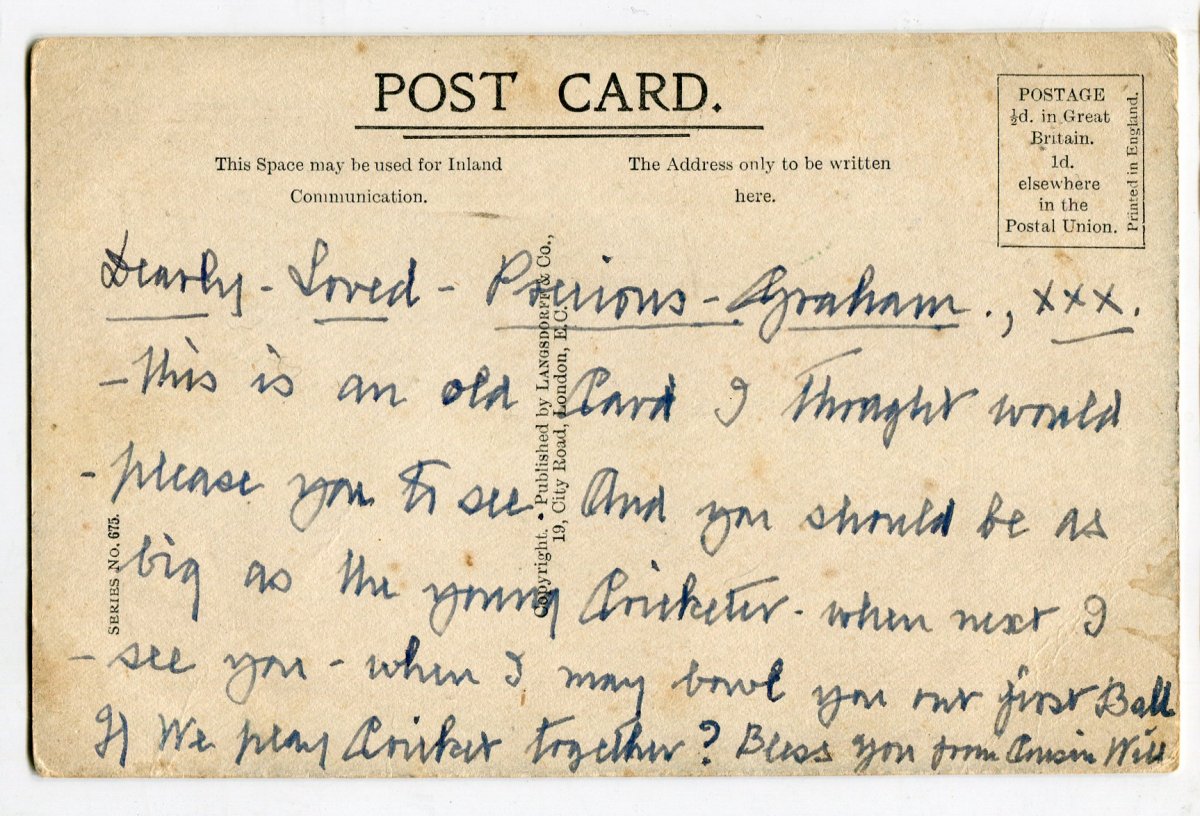 POST CARD.
This Space may be used for Inland
Communication.
The Address only to be written
here.
POSTAGE
½d. in Great
Britain.
1d.
elsewhere
in the
Postal Union.
Printed in England.
Dearly - Loved - Precious - Graham ., xxx.
- this is an old Card I thought would
- please you to see. And you should be as
big as the young Cricketer - when next I
- see you - when I may bowl you our first Ball
If We play Cricket together? Bless you from Cousin Will
SERIES NO. 675.
Copyright. • Published by LANGSDORFF & Co.,
19, City Road, London, E.C.